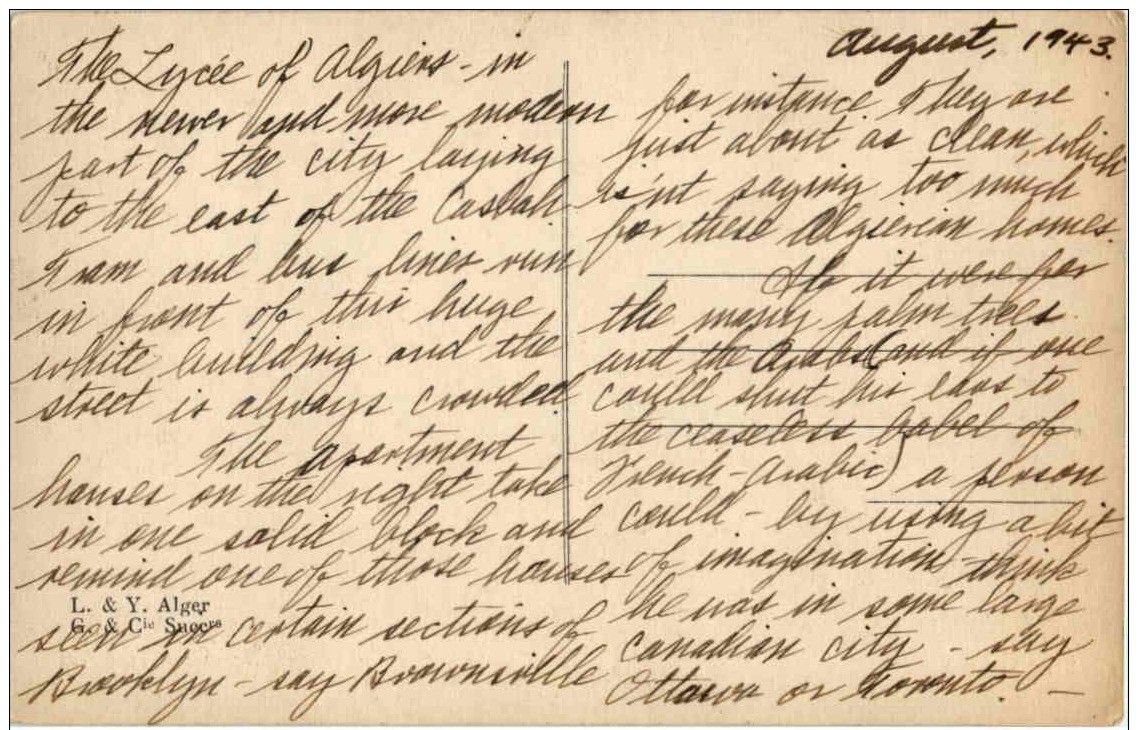 August, 1943.
The Lycée of Algiers - in
the newer and more modern
part of the city laying
to the east of the Casbah
Tram and bus lines run
in front of this huge
white building and the
street is always crowded
The apartment
houses on the right take
in one solid block and
remind one of those houses
seen in certain sections of
Brooklyn - say Brownsville
for instance. They are
just about as clean, which
is'nt saying too much
for these Algierian homes.
If it were for
the many palm trees
and the Arabs (and if one
could shut his ears to
the ceaseless babel of
French-Arabic) a person
could - by using a bit
of imagination - think
he was in some large
Canadian city - say
Ottawa or Toronto. -
L. & Y. Alger
G. & Cie Succrs